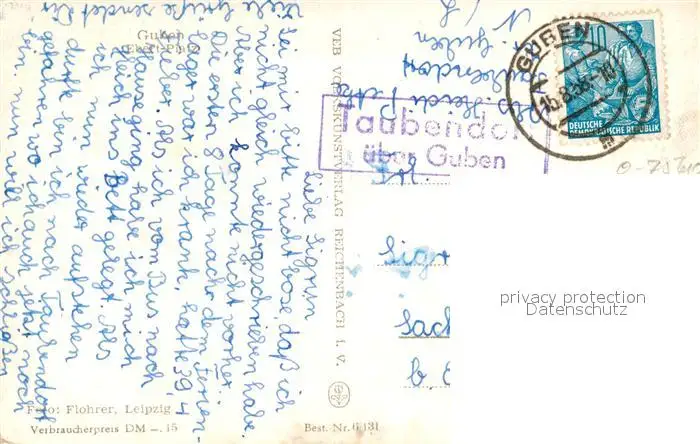 Guben
Ebert-Platz
Liebe Sigrun
Sei mir bitte nicht böse, daß ich
nicht gleich wiedergeschrieben habe.
Aber ich konnte nicht vorher.
Die ersten 8 Tage nach dem Ferien-
lager war ich krank, hatte 39,4
Fieber. Als ich vom Bus nach
Hause ging, habe ich mich
gleich ins Bett gelegt. Als
ich nun wieder aufstehen
durfte bin ich nach Taubendorf
gefahren wo ich auch jetzt noch
bin. Nun will ich schließen
Viele Grüße sendet Dir
Foto: Flohrer, Leipzig
Verbraucherpreis DM –.15
VEB VOLKSKUNSTVERLAG REICHENBACH I. V.
Best. Nr. 6/131
Abs. Heidi
Taubendorf
Guben
N/L
Taubendor
über Guben
GUBEN
10
DEUTSCHE
DEMOKRATISCHE REPUBLIK
Sigr
Sach
privacy protection
Datenschutz